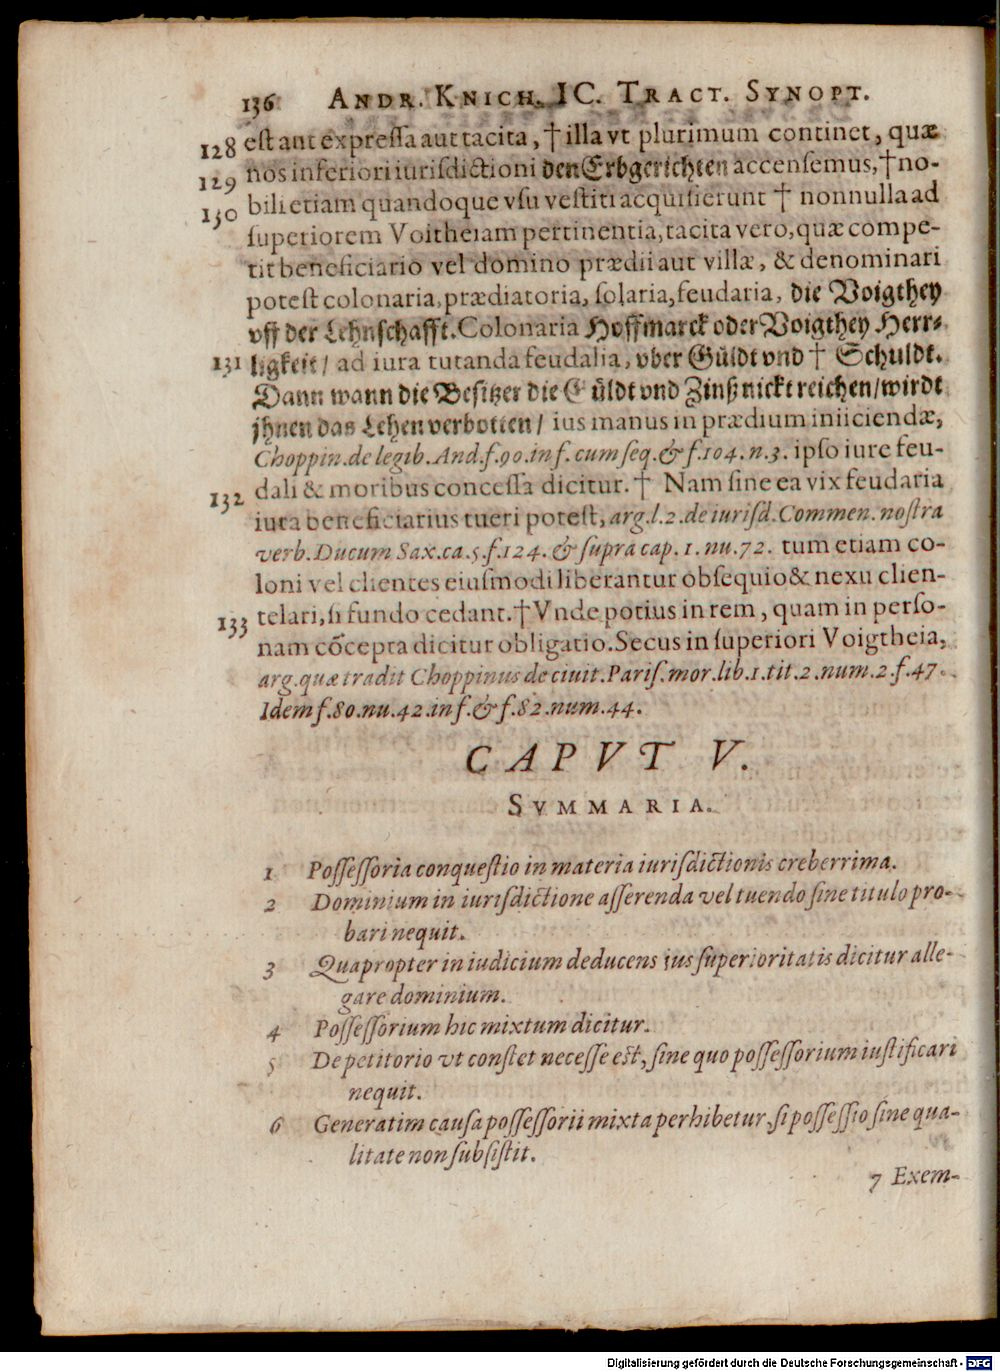 136 ANDR. KNICH. IC. TRACT. SYNOPT.
128 est aut expressa aut tacita, † illa vt plurimum continet, quæ
129 nos inferiori iurisdictioni den Erbgerichten accensemus, † no-
130 bili etiam quandoque vsu vestiti acquisierunt † nonnulla ad
superiorem Voitheiam pertinentia, tacita vero, quæ compe-
tit beneficiario vel domino prædii aut villæ, & denominari
potest colonaria, prædiatoria, solaria, feudaria, die Voigthey
vff der Lehnschafft. Colonaria Hoffmarck oder Voigthey Herr-
131 ligkeit / ad iura tutanda feudalia, vber Güldt vnd † Schuldt.
Dann wann die Besitzer die Güldt vnd Zinß nickt reichen / wirdt
jhnen das Lehen verbotten / ius manus in prædium iniiciendæ,
Choppin. de legib. And. f. 90. in f. cum seq. & f. 104. n. 3. ipso iure feu-
132 dali & moribus concessa dicitur. † Nam sine ea vix feudaria
iura beneficiarius tueri potest, arg. l. 2. de iurisd. Commen. nostra
verb. Ducum Sax. ca. 5. f. 124. & supra cap. 1. nu. 72. tum etiam co-
loni vel clientes eiusmodi liberantur obsequio & nexu clien-
133 telari, si fundo cedant. † Vnde potius in rem, quam in perso-
nam cōcepta dicitur obligatio. Secus in superiori Voigtheia,
arg. quæ tradit Choppinus de ciuit. Paris. mor. lib. 1. tit. 2. num. 2. f. 47.
Idem f. 80. nu. 42. in f. & f. 82. num. 44.
CAPVT V.
SVMMARIA.
1 Possessoria conquestio in materia iurisdictionis creberrima.
2 Dominium in iurisdictione asserenda vel tuendo sine titulo pro-
bari nequit.
3 Quapropter in iudicium deducens ius superioritatis dicitur alle-
gare dominium.
4 Possessorium hic mixtum dicitur.
5 De petitorio vt constet necesse est, sine quo possessorium iustificari
nequit.
6 Generatim causa possessorii mixta perhibetur, si possessio sine qua-
litate non subsistit.
7 Exem-
Digitalisierung gefördert durch die Deutsche Forschungsgemeinschaft - DFG